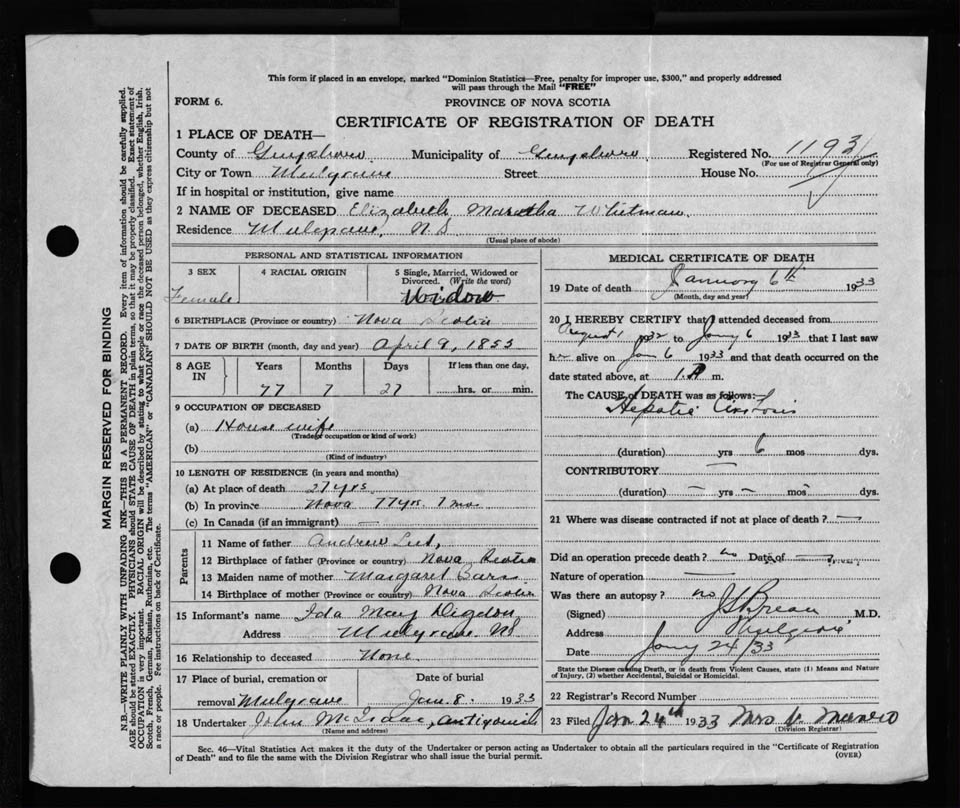 This form if placed in an envelope, marked "Dominion Statistics—Free, penalty for improper use, $300," and properly addressed
will pass through the Mail "FREE"
FORM 6.
PROVINCE OF NOVA SCOTIA
CERTIFICATE OF REGISTRATION OF DEATH
1 PLACE OF DEATH—
County of Guysboro Municipality of Guysboro Registered No. 1193
(For use of Registrar General only)
City or Town Mulgrave Street House No.
If in hospital or institution, give name
2 NAME OF DECEASED Elizabeth Maratha Whitman
Residence Mulgrave, N.S
(Usual place of abode)
PERSONAL AND STATISTICAL INFORMATION
3 SEX 4 RACIAL ORIGIN 5 Single, Married, Widowed or
Divorced. (Write the word)
Female Widow
6 BIRTHPLACE (Province or country) Nova Scotia
7 DATE OF BIRTH (month, day and year) April 9, 1855
8 AGE IN Years Months Days If less than one day,
77 7 27 hrs. or min.
9 OCCUPATION OF DECEASED
(a) House wife
(Trade, occupation or kind of work)
(b)
(Kind of industry)
10 LENGTH OF RESIDENCE (in years and months)
(a) At place of death 27 yrs
(b) In province Nova 77 yr. 7 mo
(c) In Canada (if an immigrant) —
Parents
11 Name of father Andrew
12 Birthplace of father (Province or country) Nova Scotia
13 Maiden name of mother Margaret
14 Birthplace of mother (Province or country) Nova Scotia
15 Informant's name Ida May Digdon
Address Mulgrave NS
16 Relationship to deceased None
17 Place of burial, cremation or Date of burial
removal Mulgrave Jan. 8. 1933
18 Undertaker John McIsaac, Antigonish
(Name and address)
MEDICAL CERTIFICATE OF DEATH
19 Date of death January 6th 1933
(Month, day and year)
20 I HEREBY CERTIFY that I attended deceased from
August 1 1932 to Jany 6 1933 that I last saw
her alive on Jan 6 1933 and that death occurred on the
date stated above, at 1. A m.
The CAUSE of DEATH was as follows:
Hepatic Cirrhosis
(duration) yrs 6 mos dys.
CONTRIBUTORY —
(duration) — yrs — mos — dys.
21 Where was disease contracted if not at place of death? —
Did an operation precede death? no Date of —
Nature of operation —
Was there an autopsy? no
(Signed) M.D.
Address Mulgrave
Date Jany 24/33
State the Disease causing Death, or in death from Violent Causes, state (1) Means and Nature
of Injury, (2) whether Accidental, Suicidal or Homicidal.
22 Registrar's Record Number
23 Filed Jan 24th 1933 Mrs
(Division Registrar)
Sec. 46—Vital Statistics Act makes it the duty of the Undertaker or person acting as Undertaker to obtain all the particulars required in the "Certificate of Registration
of Death" and to file the same with the Division Registrar who shall issue the burial permit.
(OVER)
MARGIN RESERVED FOR BINDING
N.B.—WRITE PLAINLY WITH UNFADING INK—THIS IS A PERMANENT RECORD. Every item of information should be carefully supplied.
AGE should be stated EXACTLY. PHYSICIANS should STATE CAUSE OF DEATH in plain terms, so that it may be properly classified. Exact statement of
OCCUPATION is very important. RACIAL ORIGIN will be described by stating to what people or race the deceased person belonged, whether English, Irish,
Scotch, French, German, Russian, Ruthenian, etc. The terms "AMERICAN" or "CANADIAN" SHOULD NOT BE USED as they express citizenship but not
a race or people. Fee instructions on back of Certificate.